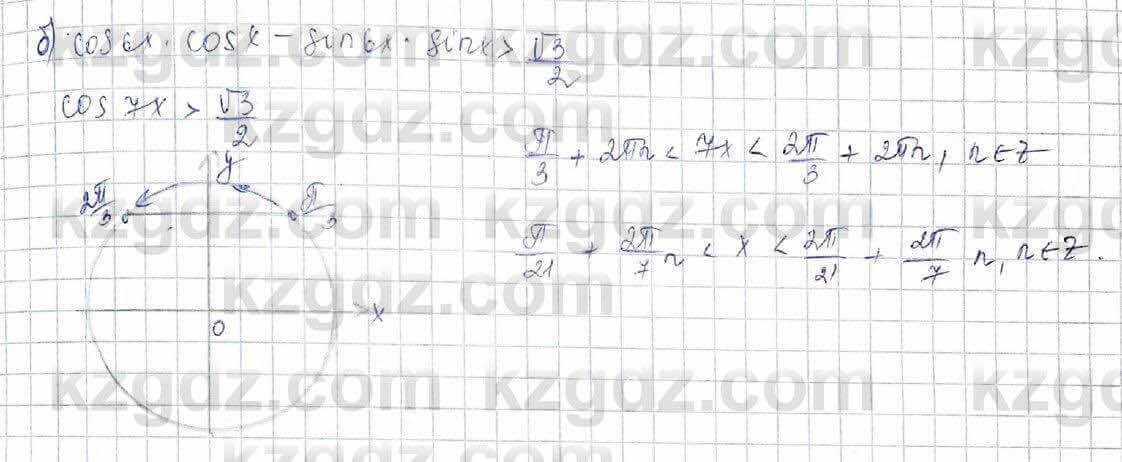 б) cos6x · cosx − sin6x · sinx > √3/2
cos7x > √3/2
π/3 + 2πn < 7x < 2π/3 + 2πn, n∈Z
y
2π/3
π/3
π/21 + 2π/7 n < x < 2π/21 + 2π/7 n, n∈Z.
x
0
kzgdz.com
kzgdz.com
kzgdz.com
kzgdz.com
kzgdz.com
kzgdz.com
kzgdz.com
kzgdz.com